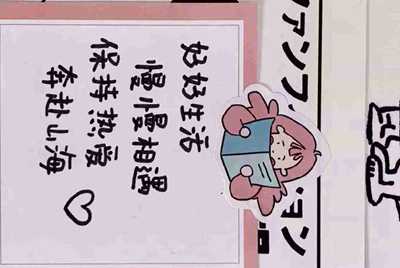 好好生活
慢慢相遇
保持热爱
奔赴山海
ァンフ
ョン